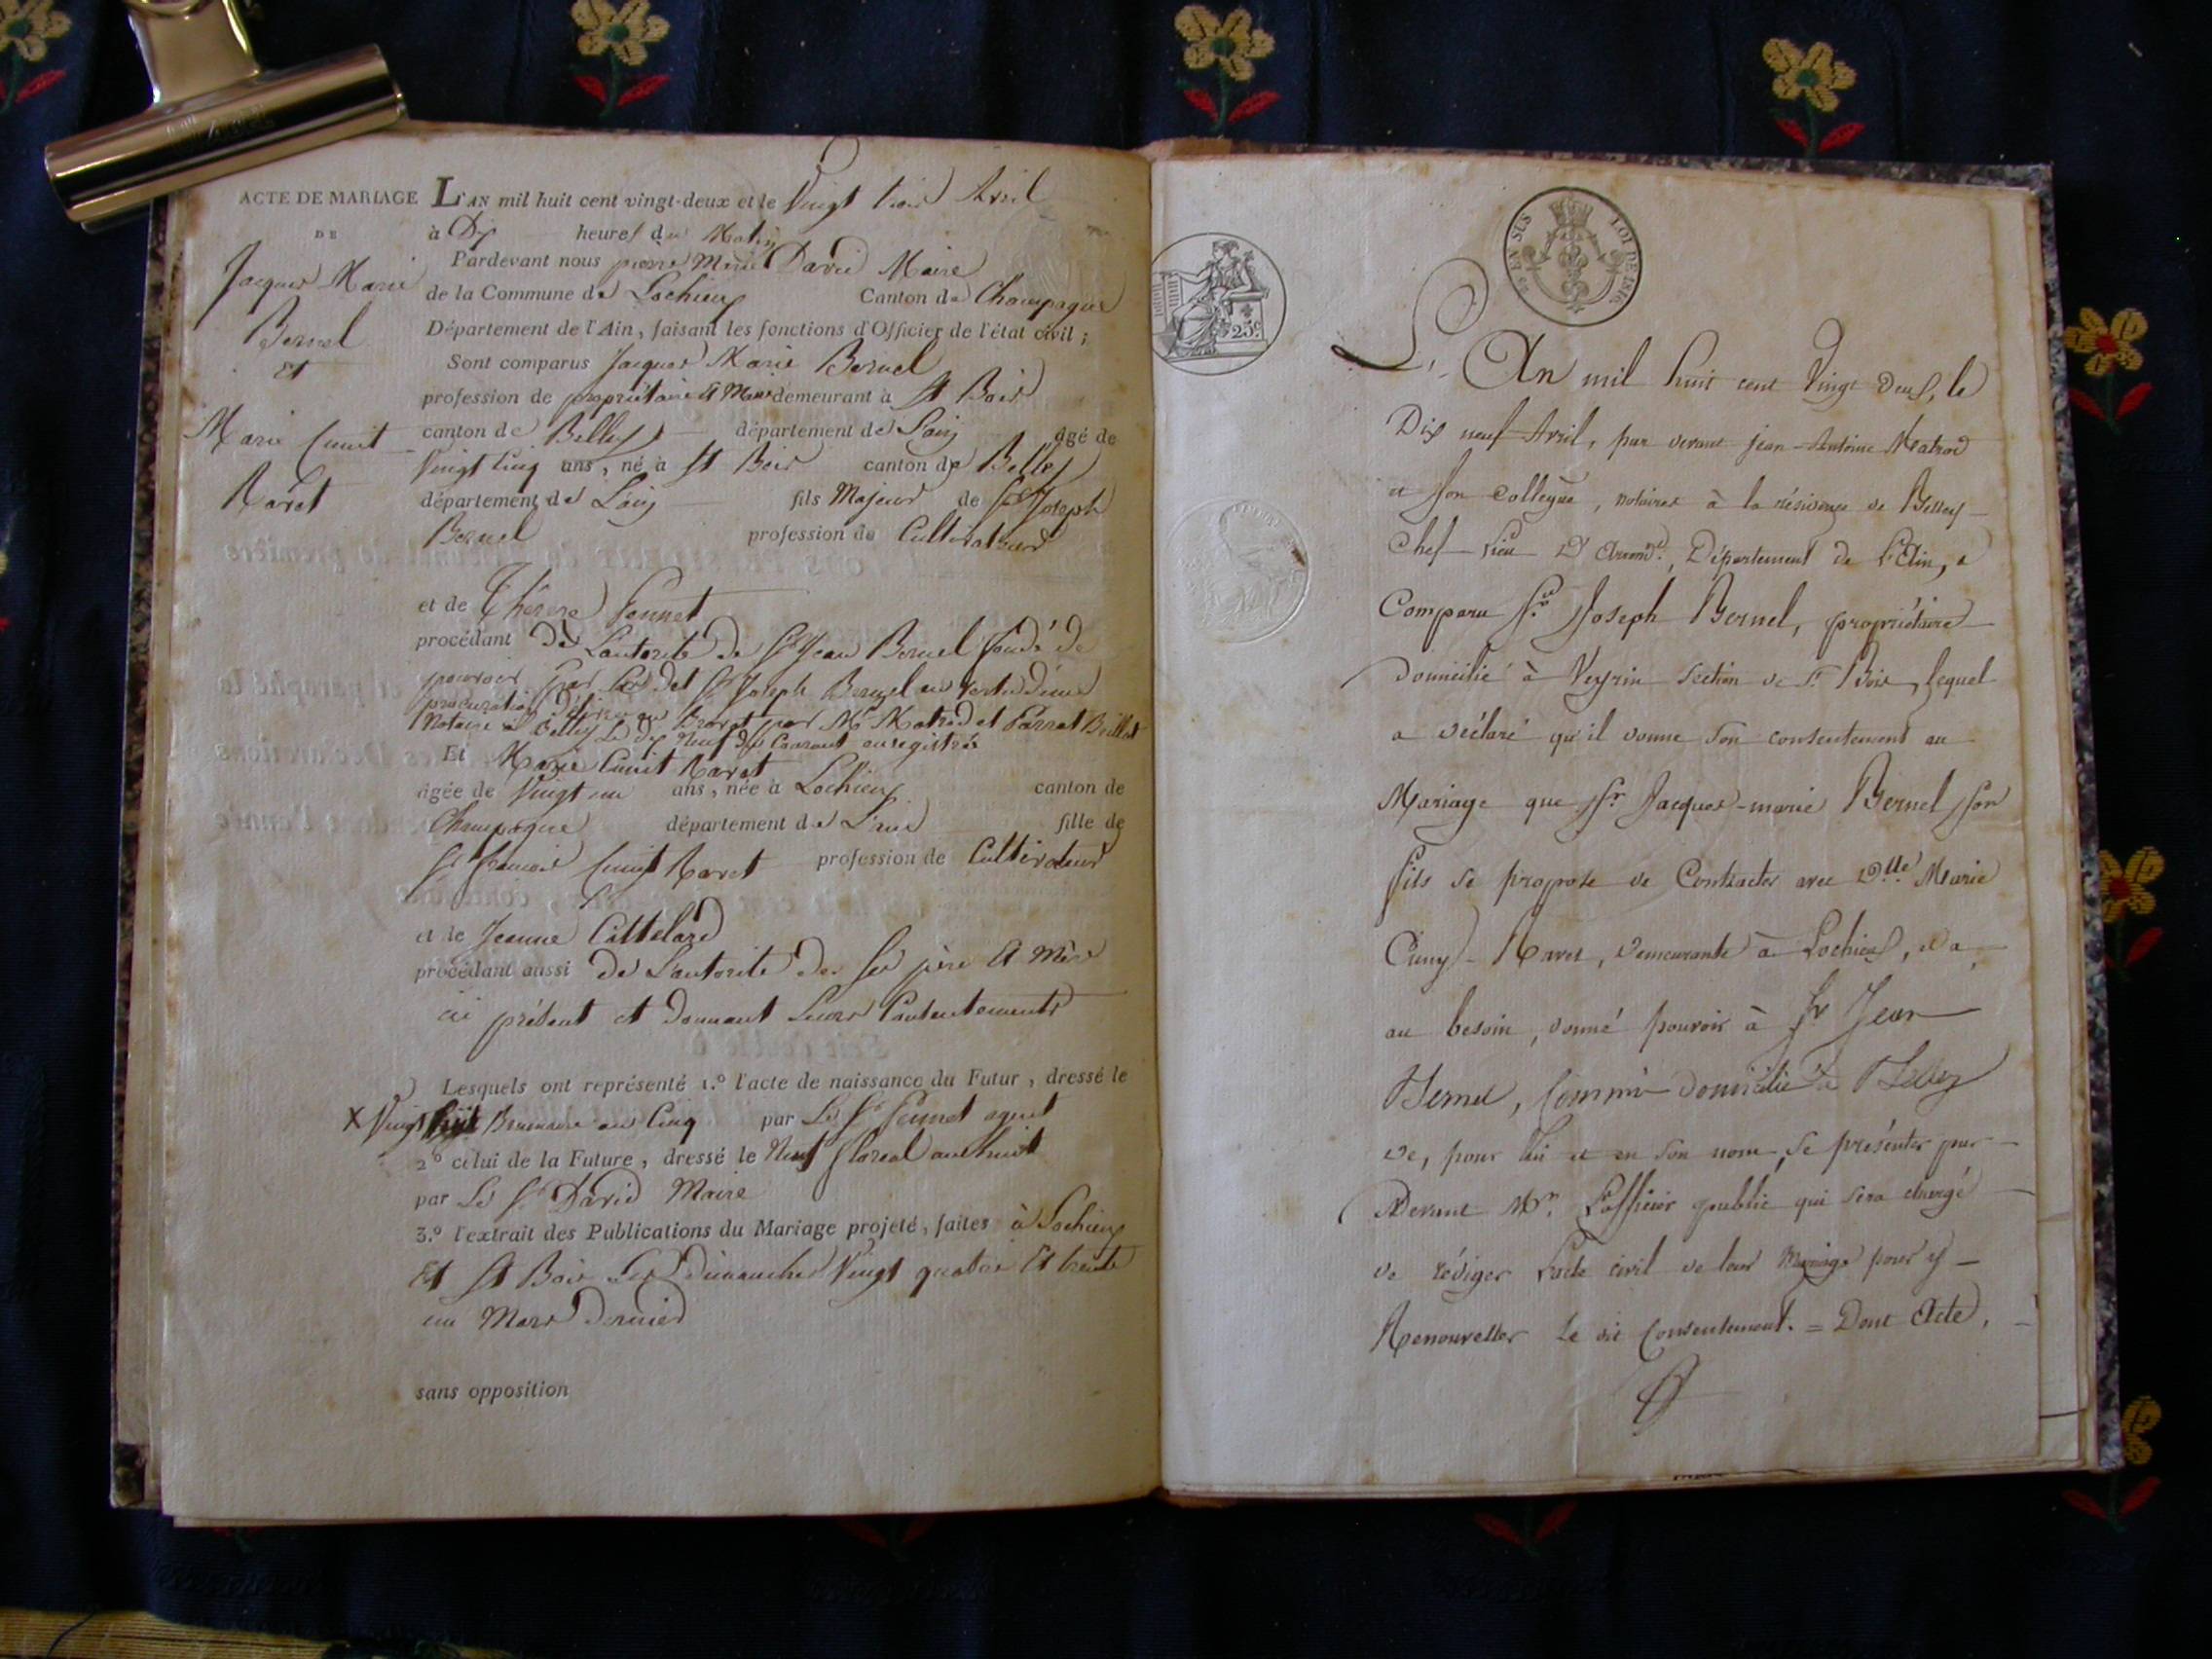 ACTE DE MARIAGE
DE
Jacques Marie
Bernel
et
Marie Cunit
Ravet
L'AN mil huit cent vingt-deux et le Vingt trois Avril
à Dix heures du Matin
Pardevant nous pierre Marie David Maire
de la Commune de Lochieux Canton de Champagne
Département de l'Ain, faisant les fonctions d'Officier de l'état civil;
Sont comparus Jacques Marie Bernel
profession de propriétaire et demeurant à St Bois
canton de Belley département de Lain âgé de
Vingt cinq ans, né à St Bois canton de Belley
département de Lain fils Majeur de Sr Joseph
Bernel profession de Cultivateur
et de Thérese
procédant de Lautorité de Sr Jean Bernel fondé de
pouvoir par Sr Joseph Bernel en vertu d'une
procuration Brevet par Me Matrod et Parrat Brillat
Notaire à Belley Le dix Neuf du Courant enregistrée
Et Marie Cunit Ravet
âgée de Vingt un ans, née à Lochieux canton de
Champagne département de L'ain fille de
Sr francois Cunit Ravet profession de Cultivateur
et de Jeanne Cattelard
procédant aussi de Lautorité de Ses père et Mère
ici présent et donnant Leurs Consentements
Lesquels ont représenté 1.º l'acte de naissance du Futur, dressé le
X Vingt huit Brumaire an Cinq par Le Sr agent
2º celui de la Future, dressé le Neuf floréal an huit
par Le Sr David Maire
3.º l'extrait des Publications du Mariage projeté, faites à Lochieux
Et St Bois Les dimanches Vingt quatre Et trente
un Mars dernier
sans opposition
EN SUS LOI DE 1816
25c
L'An mil huit cent vingt deux, le
Dix neuf Avril, par devant jean-Antoine Matrod
et son collegue, notaires à la résidence de Belley
Chef lieu D'arrond.t, Département de L'Ain, a
Comparu Sr. Joseph Bernel, propriétaire
domicilié à Veyrin section de St Bois, lequel
a déclaré qu'il donne son consentement au
Mariage que Sr Jacques-marie Bernel son
fils se propose de Contracter avec Dlle Marie
Cuny-Ravet, demeurante à Lochieux, et a
au besoin, donné pouvoir à Sr Jean
Bernel, Commis domicilié à Belley
de, pour lui et en son nom, se présenter par
Devant Mr. L'officier public qui sera chargé
de rédiger L'acte civil de leur Mariage pour y
Renouveller le dit Consentement. = Dont Acte,